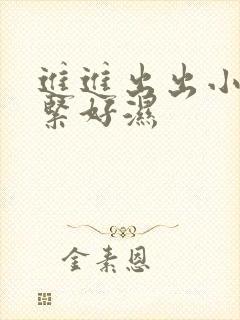 進進出出小
緊好濕
金素恩